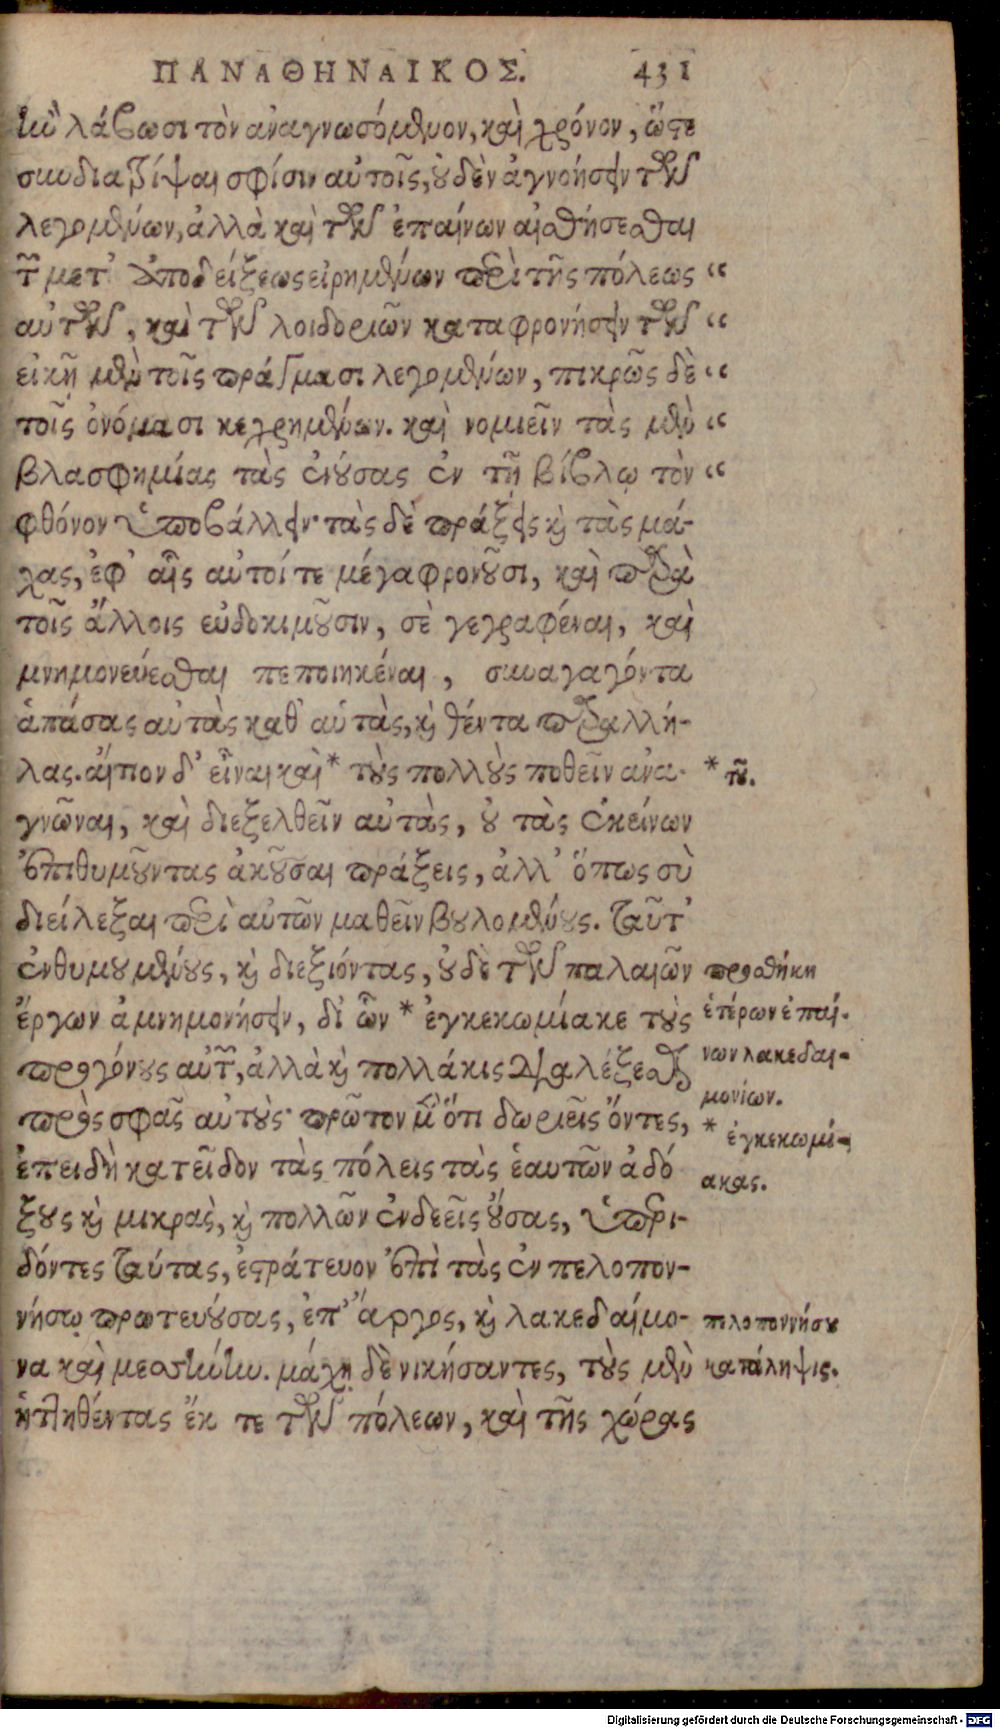 ΠΑΝΑΘΗΝΑΙΚΟΣ. 431
ἢν λάβωσι τὸν ἀναγνωσόμενον, καὶ χρόνον, ὥστε
συνδιατρίψαι σφίσιν αὐτοῖς, οὐδὲν ἀγνοήσειν τῶν
λεγομένων, ἀλλὰ καὶ τῶν ἐπαίνων αἰσθήσεσθαι
τῶν μετ' ἀποδείξεως εἰρημένων περὶ τῆς πόλεως “
αὐτῶν, καὶ τῶν λοιδοριῶν καταφρονήσειν τῶν “
εἰκῆ μὲν τοῖς πράγμασι λεγομένων, πικρῶς δὲ “
τοῖς ὀνόμασι κεχρημένων. καὶ νομιεῖν τὰς μὲν “
βλασφημίας τὰς ἐνούσας ἐν τῇ βίβλῳ τὸν “
φθόνον ὑποβάλλειν· τὰς δὲ πράξεις καὶ τὰς μά-
χας, ἐφ' αἷς αὐτοί τε μέγα φρονοῦσι, καὶ παρὰ
τοῖς ἄλλοις εὐδοκιμοῦσιν, σὲ γεγραφέναι, καὶ
μνημονεύεσθαι πεποιηκέναι, συναγαγόντα
ἁπάσας αὐτὰς καθ' αὑτὰς, καὶ θέντα παραλλή-
λας. αἴτιον δ' εἶναι καὶ * τοὺς πολλοὺς ποθεῖν ἀνα- * τοῦ.
γνῶναι, καὶ διεξελθεῖν αὐτὰς, οὐ τὰς ἐκείνων
ἐπιθυμοῦντας ἀκοῦσαι πράξεις, ἀλλ' ὅπως σὺ
διείλεξαι περὶ αὐτῶν μαθεῖν βουλομένους. ταῦτ'
ἐνθυμουμένους, καὶ διεξιόντας, οὐδὲ τῶν παλαιῶν προσθήκη
ἔργων ἀμνημονήσειν, δι' ὧν * ἐγκεκωμίακε τοὺς ἑτέρων ἐπαί-
προγόνους αὐτῶν, ἀλλὰ καὶ πολλάκις διαλέξεσθαι νων λακεδαι-
πρὸς σφᾶς αὐτούς· πρῶτον μὲν ὅτι δωριεῖς ὄντες, μονίων.
* ἐγκεκωμι-
ἐπειδὴ κατεῖδον τὰς πόλεις τὰς ἑαυτῶν ἀδό ακας.
ξους καὶ μικρὰς, καὶ πολλῶν ἐνδεεῖς οὔσας, ὑπερι-
δόντες ταύτας, ἐστράτευον ἐπὶ τὰς ἐν πελοπον-
νήσῳ πρωτευούσας, ἐπ' ἄργος, καὶ λακεδαίμο- πελοποννήσου
να καὶ μεσσήνην. μάχῃ δὲ νικήσαντες, τοὺς μὲν κατάληψις.
ἡττηθέντας ἔκ τε τῶν πόλεων, καὶ τῆς χώρας
Digitalisierung gefördert durch die Deutsche Forschungsgemeinschaft - DFG